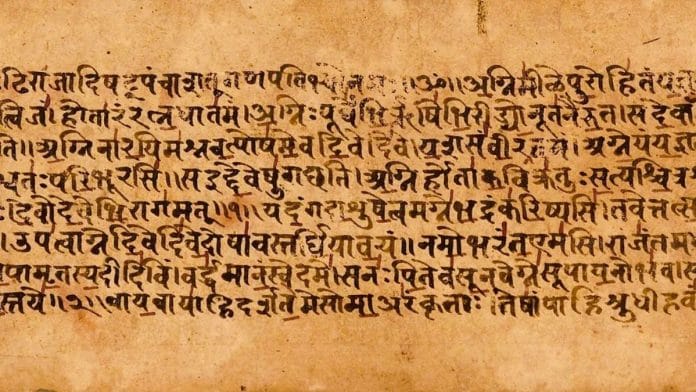 अग्निमीळेपुरोहितं
त्विजं।होतारंरत्नधातमं।अग्निःपूर्वेभिर्ऋषिभिरीड्योनूतनैरुत।सदेवाँ
ति॥अग्निनारयिमश्नवत्पोषमेवदिवेदिवे।यशसंवीरवत्तमं।अग्नेयंयज्ञ
श्वतःपरिभूरसि॥सइद्देवेषुगच्छति।अग्निर्होताकविक्रतुःसत्यश्चित्र
देवोदेवेभिरागमत्॥१॥यदंगदाशुषेत्वमग्नेभद्रंकरिष्यसि।तवेत्तत्स
।उपत्वाग्नेदिवेदिवेदोषावस्तर्धियावयं॥नमोभरंतएमसि।राजंतम
पामृतस्यदीदिविं।वर्द्धमानंस्वेदमे।सनःपितेवसूनवेग्नेसूपायनोभव।स
स्तये॥२॥वायवायाहिदर्शतेमेसोमाअरंकृताः।तेषांपाहिश्रुधीहवं